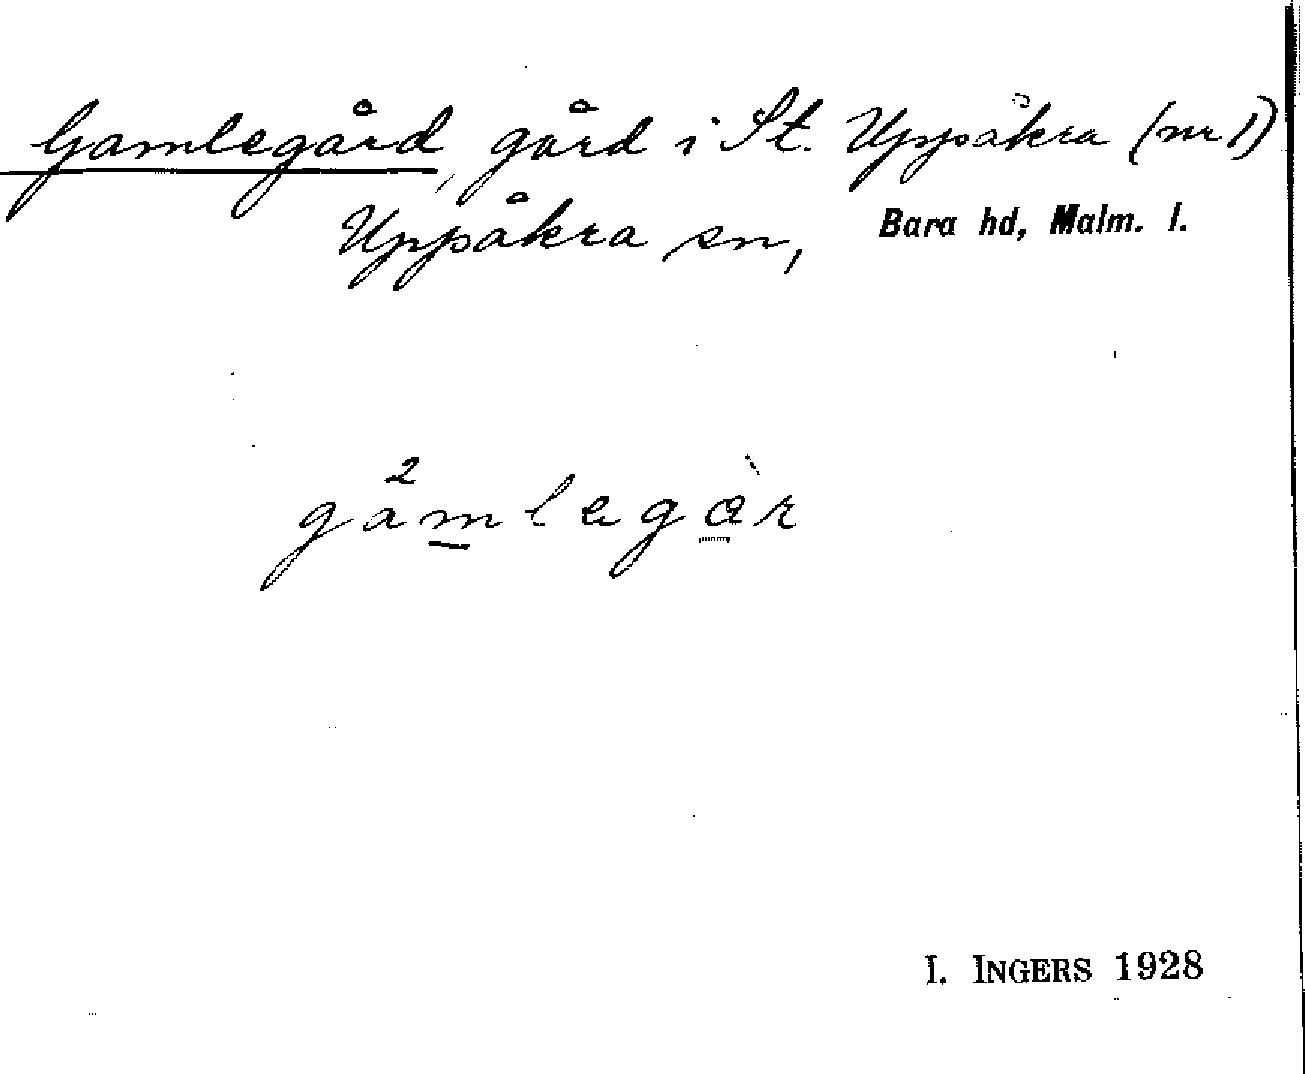 Gamlegård, gård i St. Uppåkra (nr 1)
Uppåkra sn, Bara hd, Malm. l.
gamlegàr
I. INGERS 1928